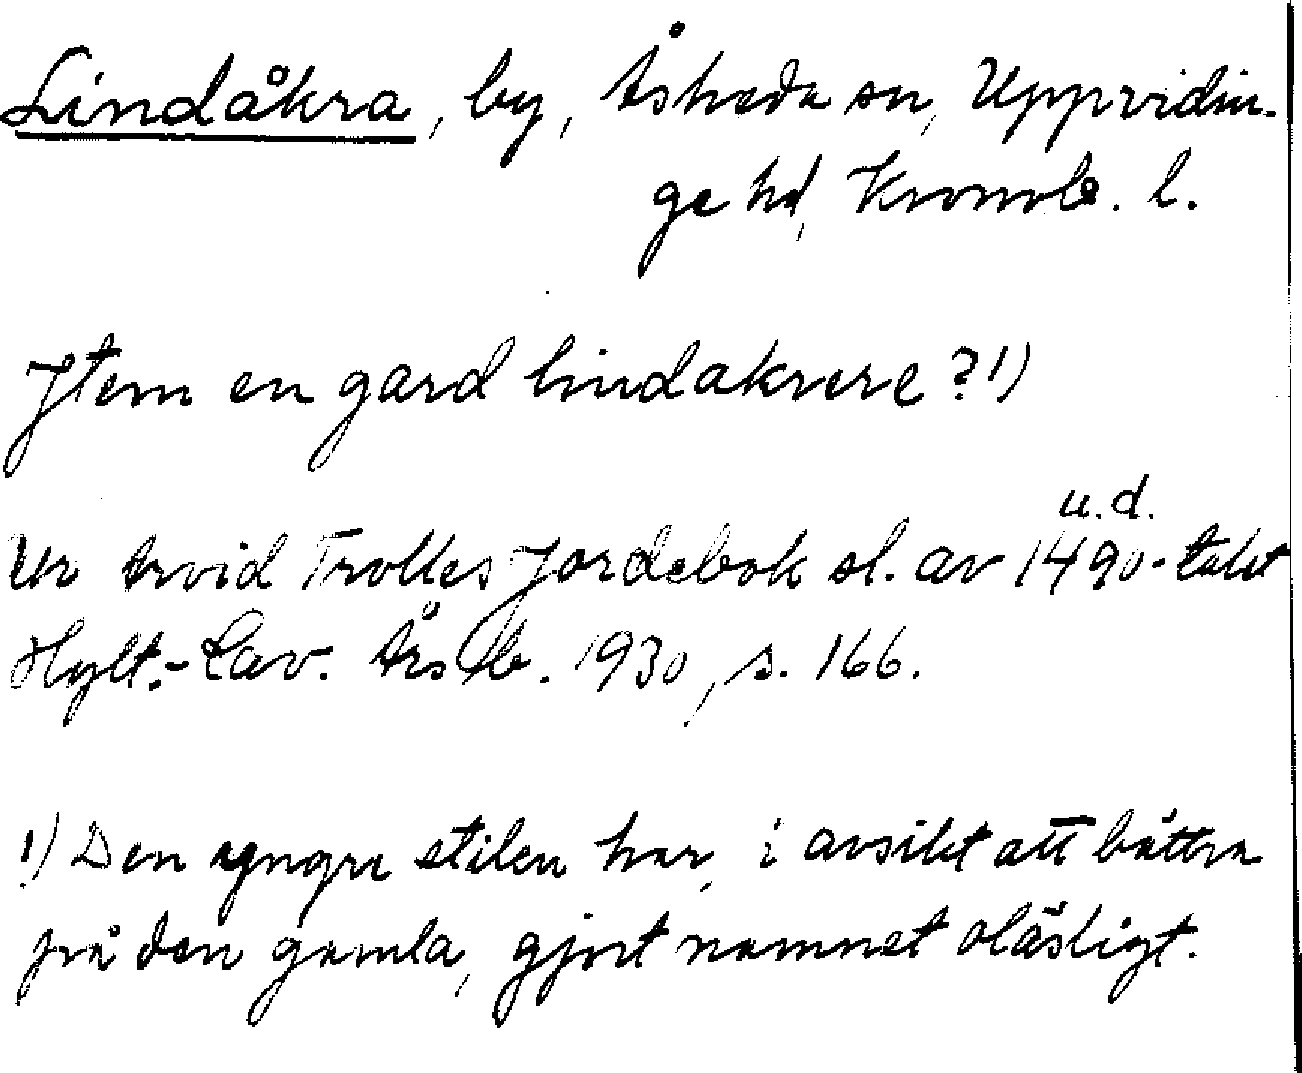 Lindåkra, by, Åsheda sn, Uppvidin-
ge hd, Kronob. l.
Jtem en gard lindakrere ?1)
u.d.
Ur Arvid Trolles Jordebok sl. av 1490-talet
Hylt.-Cav. Årsb. 1930, s. 166.
1) Den yngre stilen har, i avsikt att bättra
på den gamla, gjort namnet oläsligt.